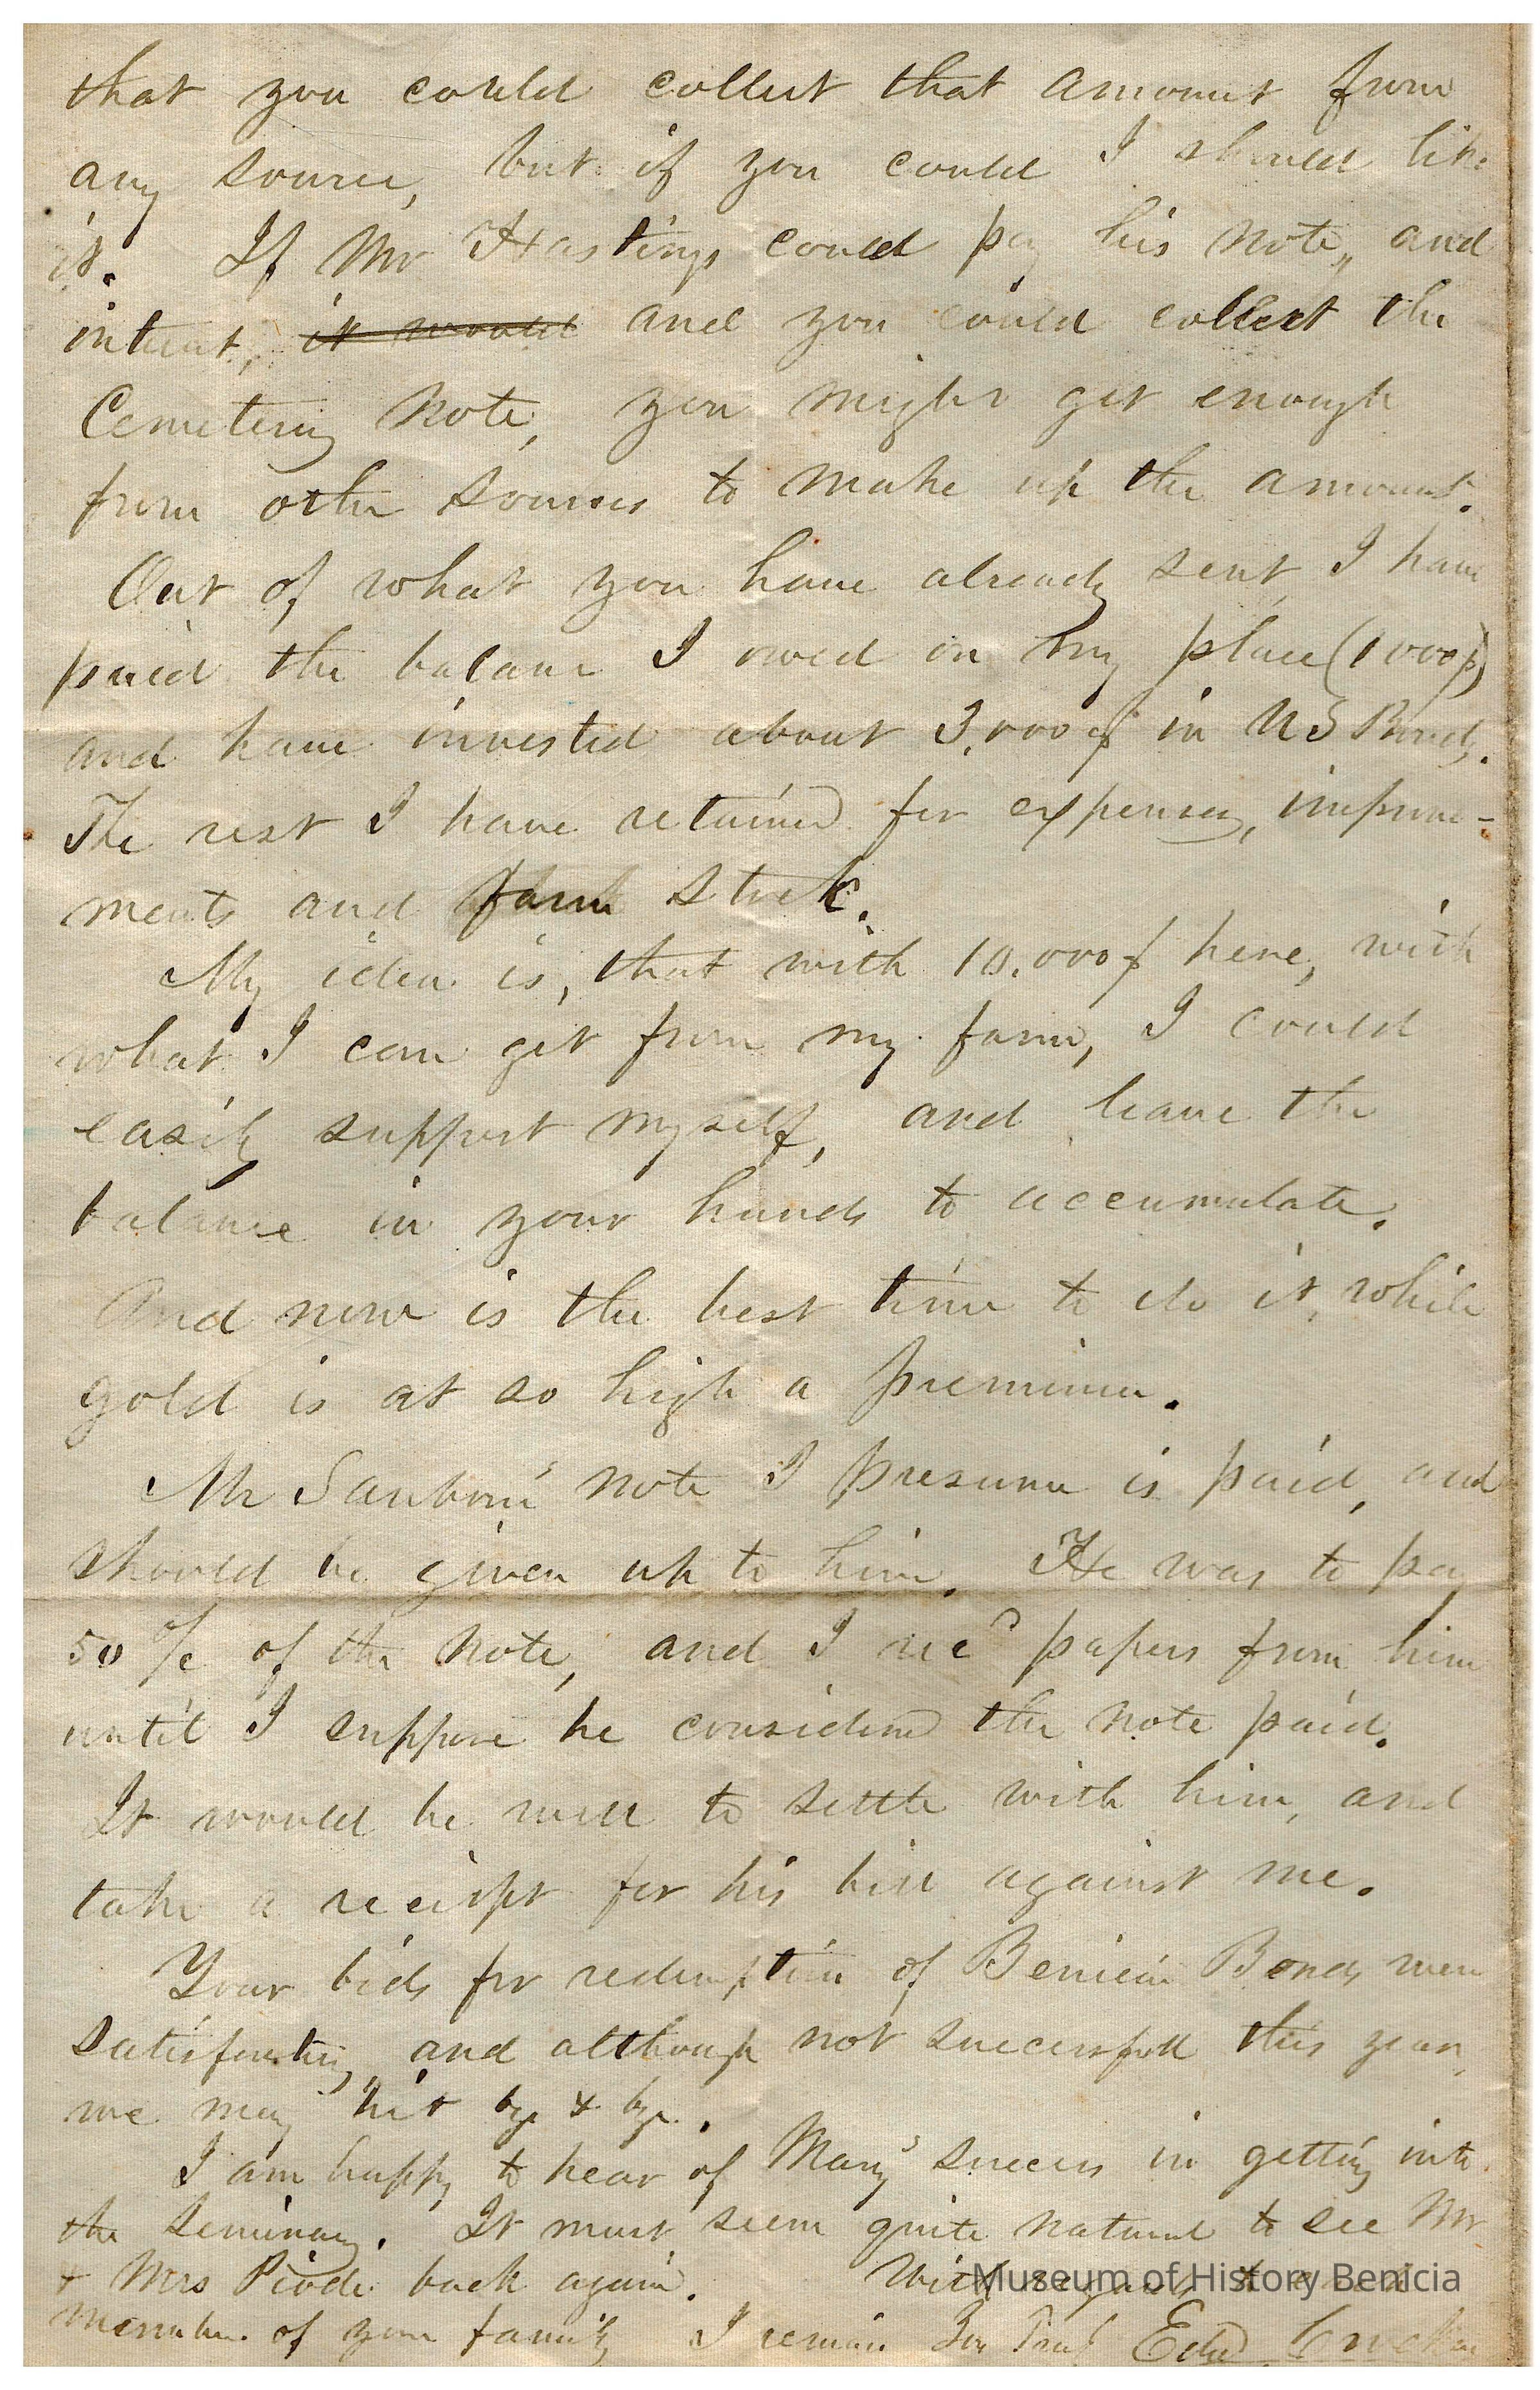 that you could collect that amount from
any source, but if you could I should like
it. If Mr Hastings could pay his note, and
interest, it would and you could collect the
Cemetery Note, you might get enough
from other sources to make up the amount.
Out of what you have already sent, I have
paid the balance I owed on my place (1000$)
and have invested about 3,000$ in US Bonds.
The rest I have retained for expenses, improve-
ments and farm stock.
My idea is, that with 10,000$ here, with
what I can get from my farm, I could
easily support myself, and leave the
balance in your hands to accumulate.
And now is the best time to do it, while
gold is at so high a premium.
Mr Sanborn's note I presume is paid, and
should be given up to him. He was to pay
50 % of the note, and I recd papers from him
until I suppose he considered the note paid.
It would be well to settle with him, and
take a receipt for his bill against me.
Your bids for redemption of Benicia Bonds were
satisfactory, and although not successful this year,
we may hit by & by.
I am happy to hear of Mary's success in getting into
the Seminary. It must seem quite natural to see Mr
& Mrs back again. With regards to
member of your family I remain Edwd
Museum of History Benicia